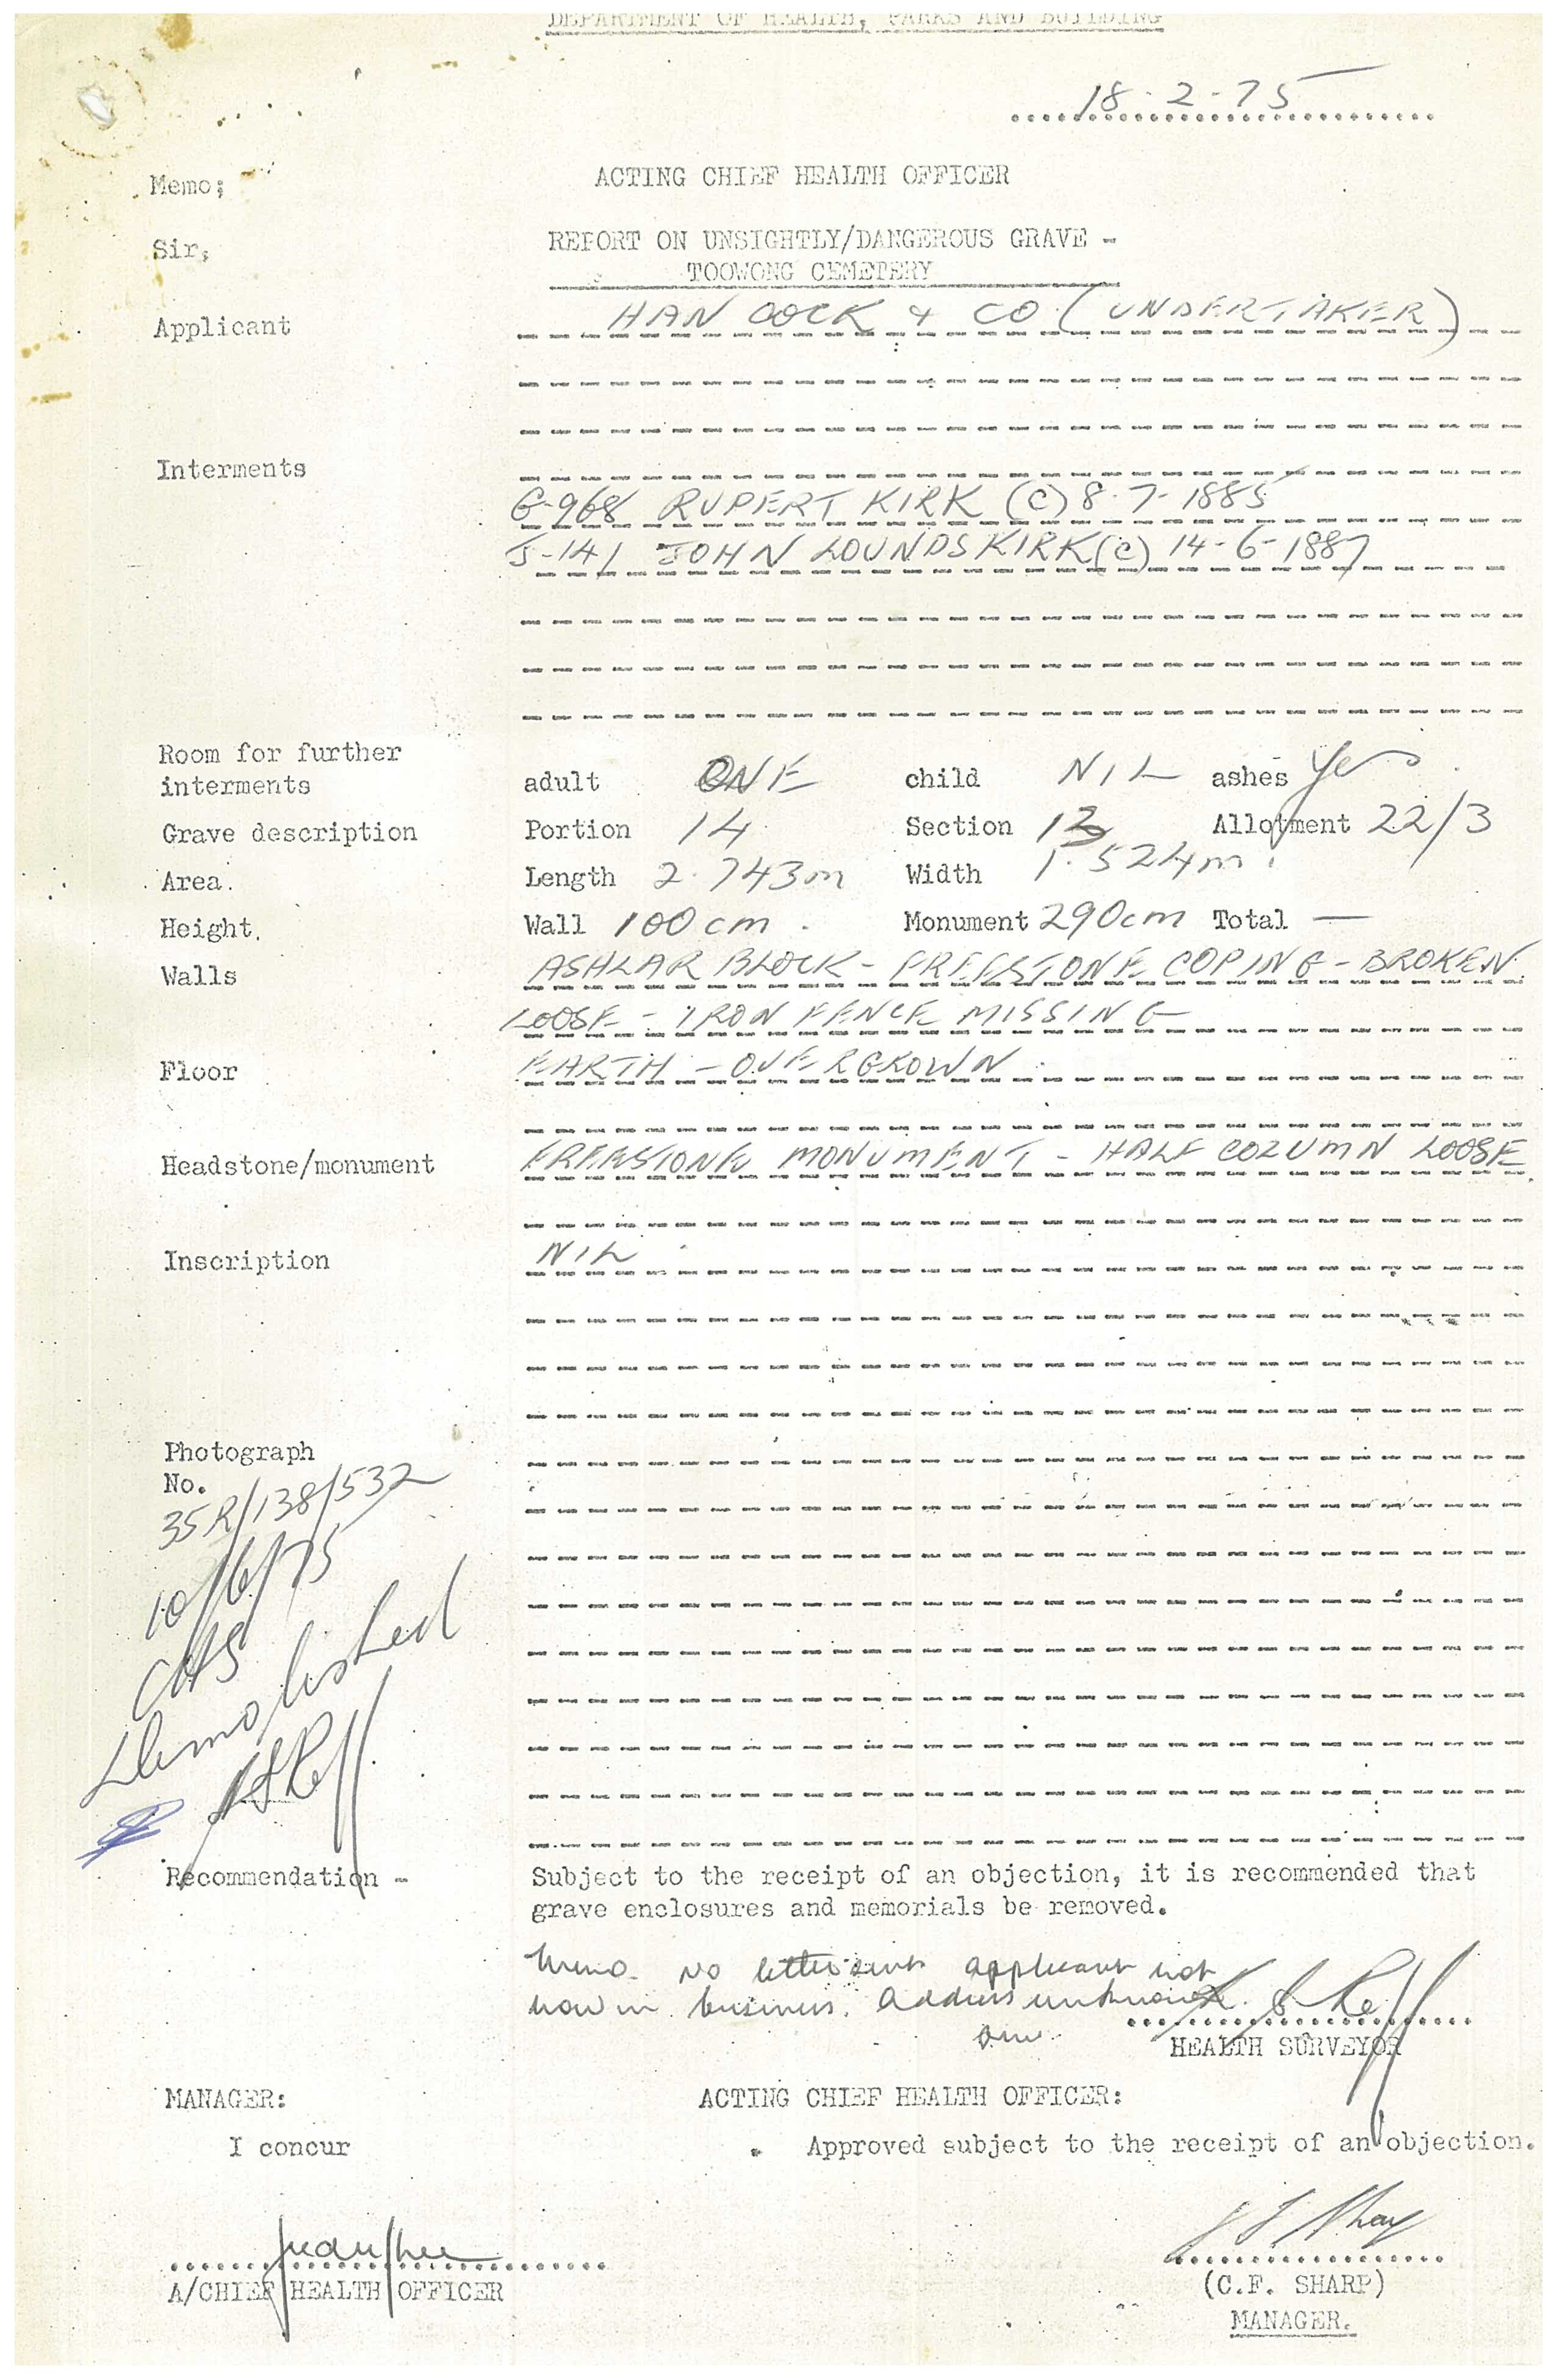 DEPARTMENT OF HEALTH, PARKS AND BUILDING
18-2-75
Memo; ACTING CHIEF HEALTH OFFICER
Sir, REPORT ON UNSIGHTLY/DANGEROUS GRAVE -
TOOWONG CEMETERY
Applicant HANCOCK & CO (UNDERTAKER)
Interments
G-968 RUPERT KIRK (C) 8-7-1885
J-141 JOHN LOUNDS KIRK (C) 14-6-1887
Room for further
interments adult ONE child NIL ashes Yes
Grave description Portion 14 Section 13 Allotment 22/3
Area. Length 2.743m Width 1.524m
Height. Wall 100cm. Monument 290cm Total —
Walls ASHLAR BLOCK - FREESTONE COPING - BROKEN
LOOSE - IRON FENCE MISSING
Floor EARTH - OVERGROWN
Headstone/monument FREESTONE MONUMENT - HALF COLUMN LOOSE
Inscription NIL
Photograph
No.
35R/138/532
10/6/75
CHS
Demolished
Recommendation - Subject to the receipt of an objection, it is recommended that
grave enclosures and memorials be removed.
Memo. No letter sent applicant not
now in business. Address unknown
HEALTH SURVEYOR
MANAGER: ACTING CHIEF HEALTH OFFICER:
I concur Approved subject to the receipt of an objection.
A/CHIEF HEALTH OFFICER (C.F. SHARP)
MANAGER.